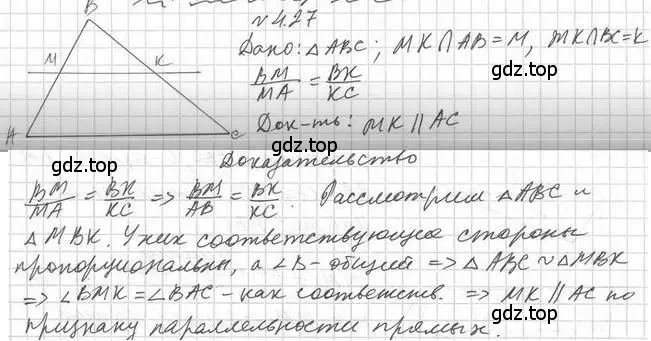 № 4.27
B
M
K
A
C
Дано: △ABC; MK∩AB=M, MK∩BC=K
BM/MA = BK/KC
gdz.top
Док-ть: MK || AC
gdz.top
Доказательство
gdz.top
BM/MA = BK/KC => BM/AB = BK/KC. Рассмотрим △ABC и
△MBK. У них соответствующие стороны
пропорциональны, а ∠B - общий => △ABC ∾ △MBK
=> ∠BMK = ∠BAC - как соответств. => MK || AC по
признаку параллельности прямых.
gdz.top
gdz.top
gdz.top